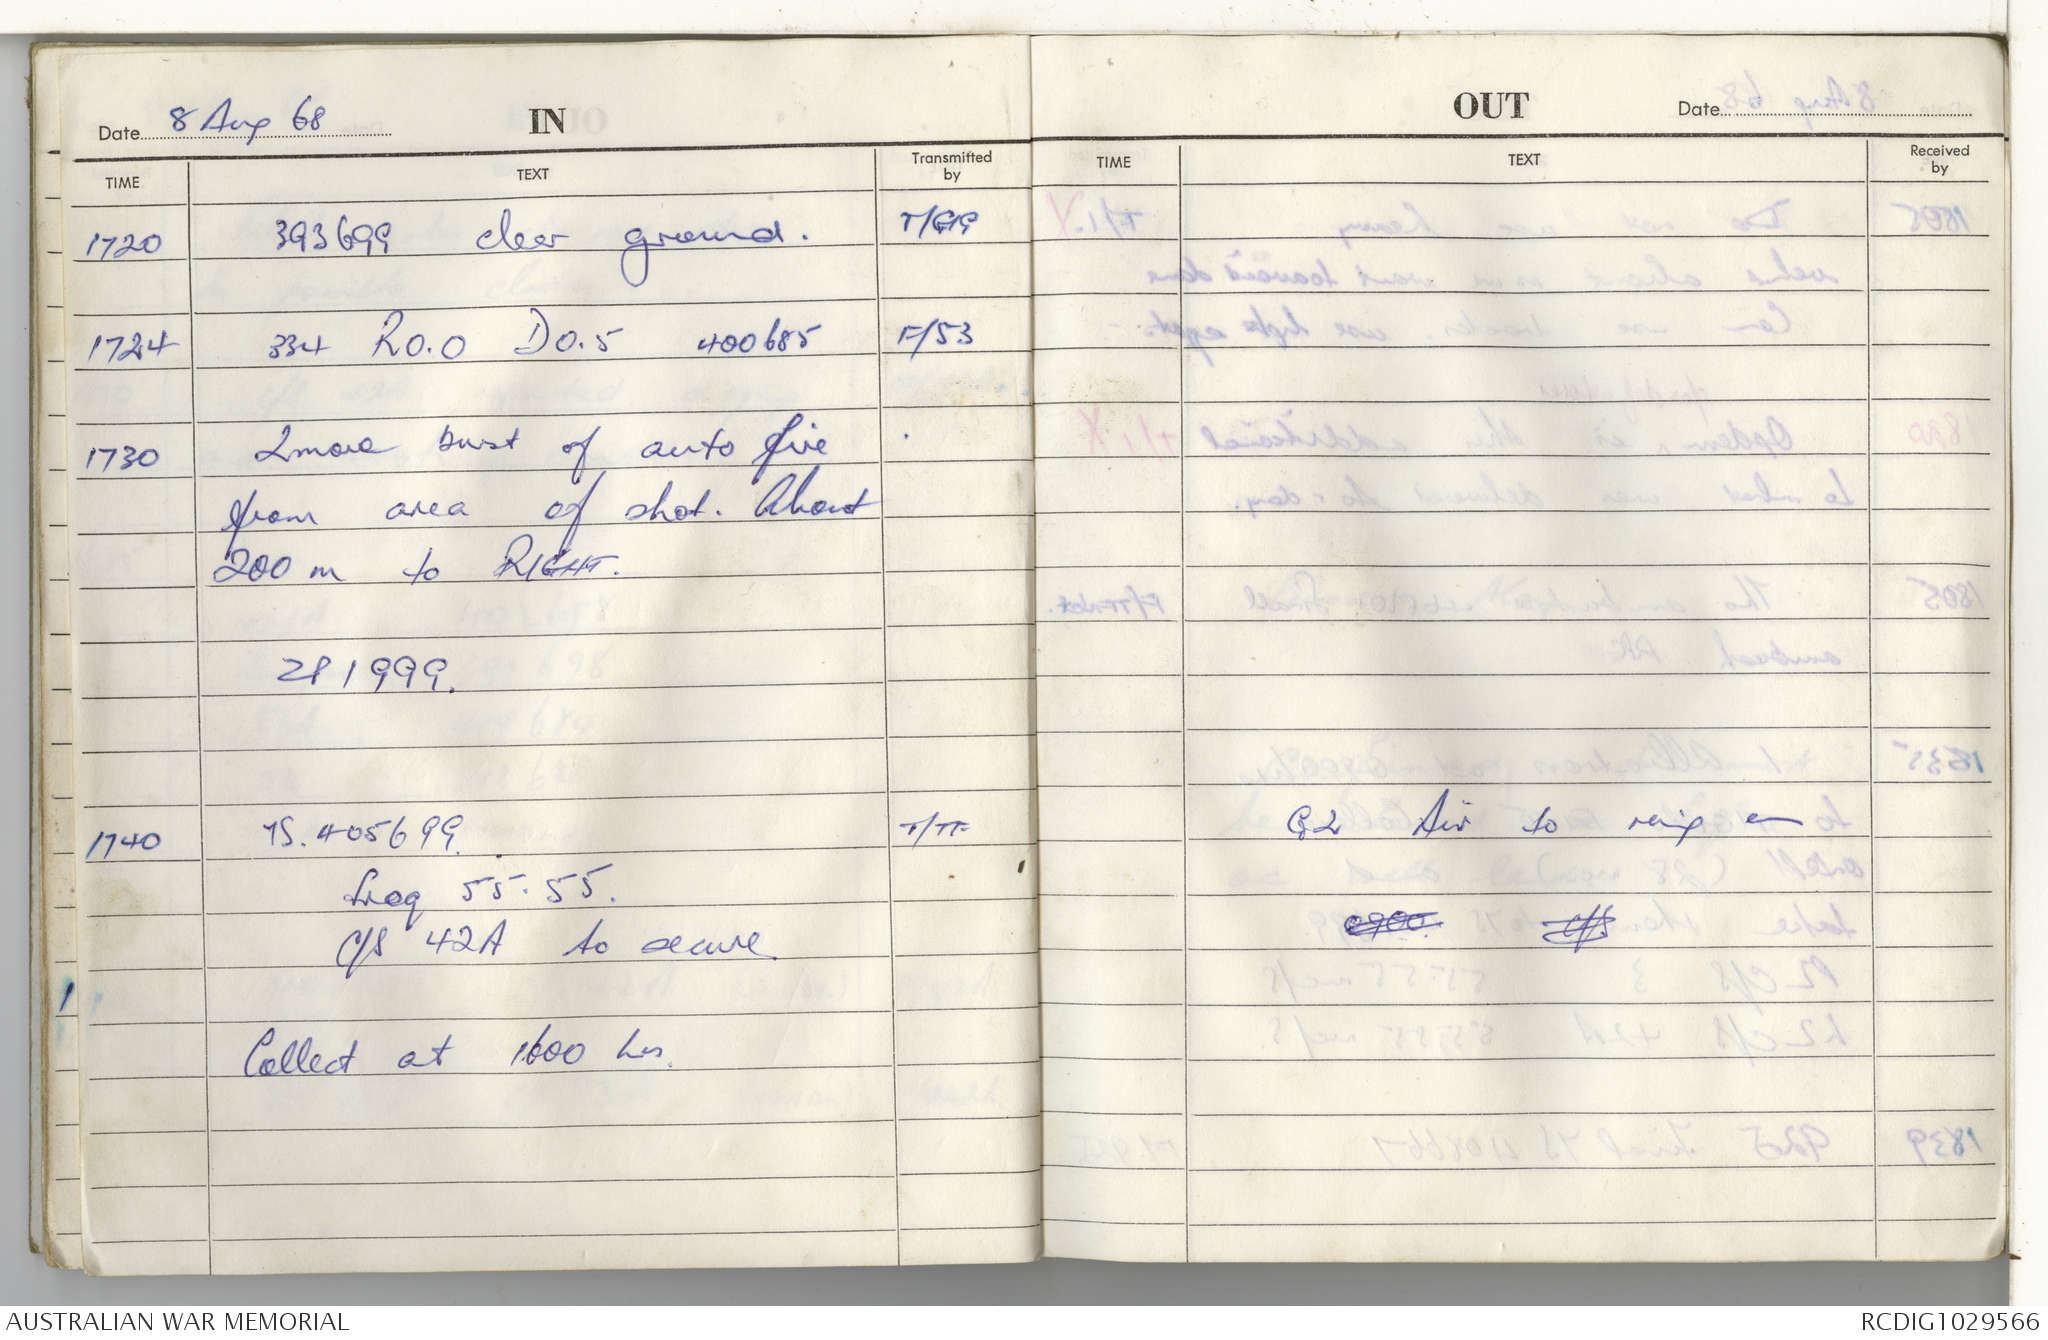 Date 8 Aug 68 IN
TIME TEXT Transmitted by
1720 393699 clear ground. T/GG
1724 334 R0.0 D0.5 400685 F/53
1730 2 more burst of auto fire
from area of shot. About
200 m to RIGHT.
281999.
1740 YS.405699. T/TF
freq 55.55.
C/S 42A to secure
Collect at 1600 hrs.
OUT Date
TIME TEXT Received by
G2 Air to ring
0900. C/S
AUSTRALIAN WAR MEMORIAL RCDIG1029566